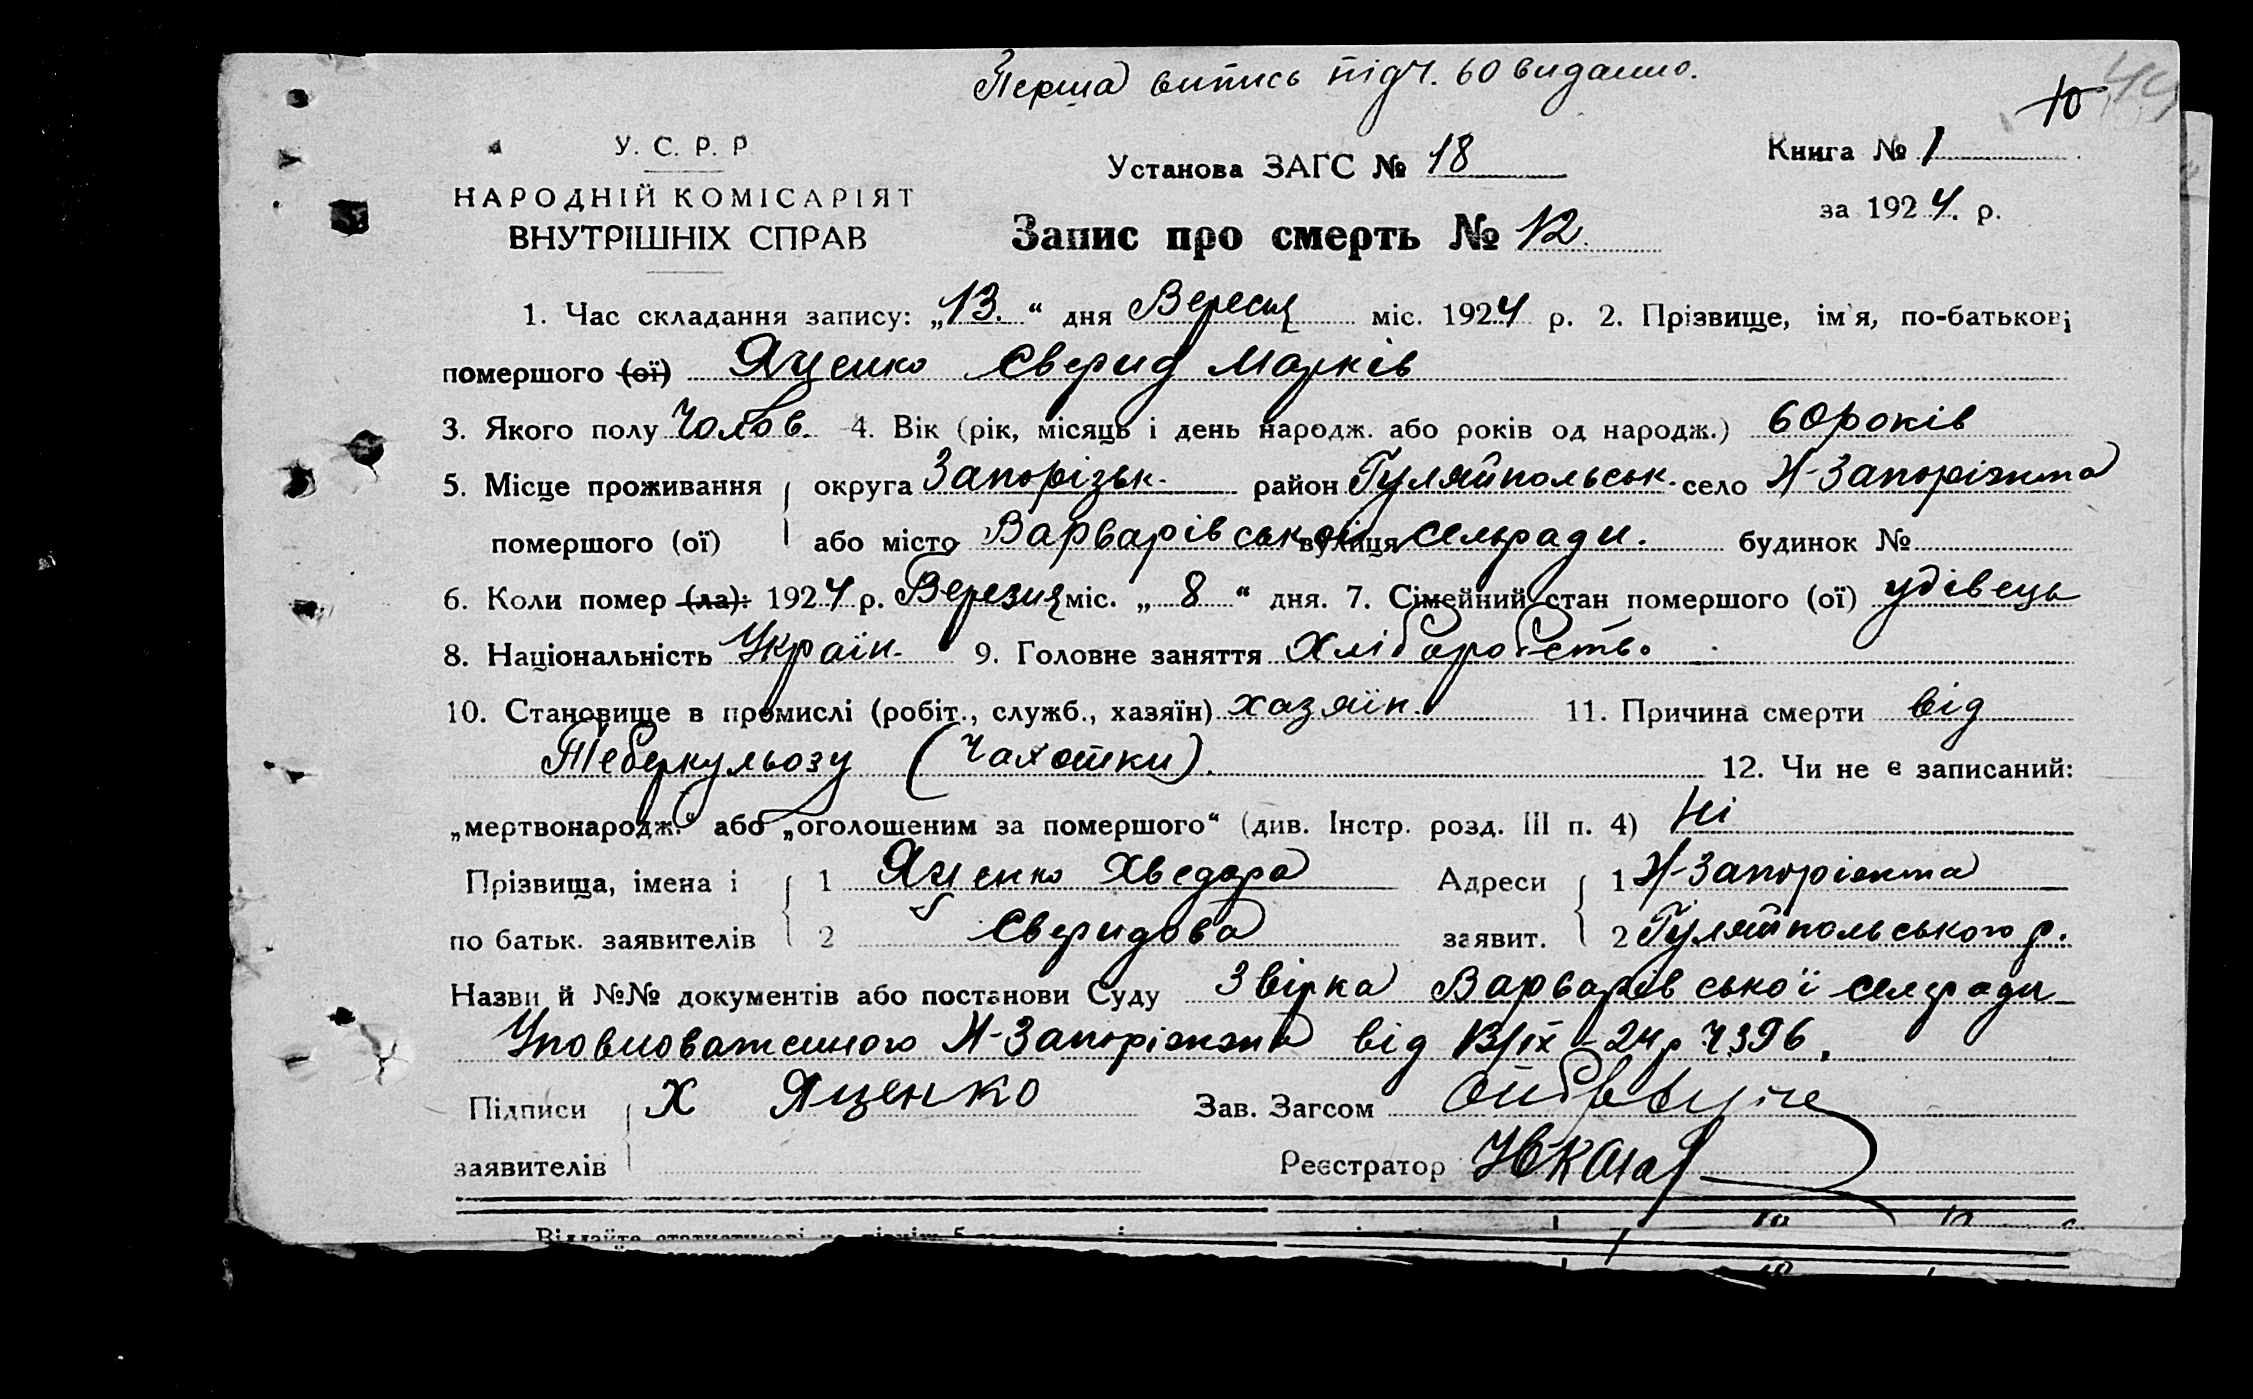 Перша випись під ч. 60 видано.
10 44
У. С. Р. Р.
НАРОДНІЙ КОМІСАРІЯТ
ВНУТРІШНІХ СПРАВ
Установа ЗАГС № 18
Книга № 1
за 1924. р.
Запис про смерть № 12.
1. Час складання запису: „13.“ дня Вересня міс. 1924 р. 2. Прізвище, ім'я, по-батькові
помершого (ої) Яценко Сверид Марків
3. Якого полу Чолов. 4. Вік (рік, місяць і день народж. або років од народж.) 60 років
5. Місце проживання округа Запорізьк. район Гуляйпольськ. село Н-Запоріжжа
помершого (ої) або місто Варварівської вулиця сельради. будинок №
6. Коли помер (ла): 1924 р. Березня міс. „8“ дня. 7. Сімейний стан помершого (ої) удівець
8. Національність Україн. 9. Головне заняття Хліборобство
10. Становище в промислі (робіт., служб., хазяїн) хазяїн. 11. Причина смерти від
Теберкульозу (Чахотки). 12. Чи не є записаний:
„мертвонародж.“ або „оголошеним за помершого“ (див. Інстр. розд. III п. 4) Ні
Прізвища, імена і 1 Яценко Хведора Адреси 1 Н-Запоріжжа
по батьк. заявителів 2 Сверидова заявит. 2 Гуляйпольського р.
Назви й №№ документів або постанови Суду Звірка Варварівської сельради
Уповноваженого Н-Запоріжжа від 13/ІХ-24 р ч 396.
Підписи Х Яценко Зав. Загсом
заявителів Реєстратор